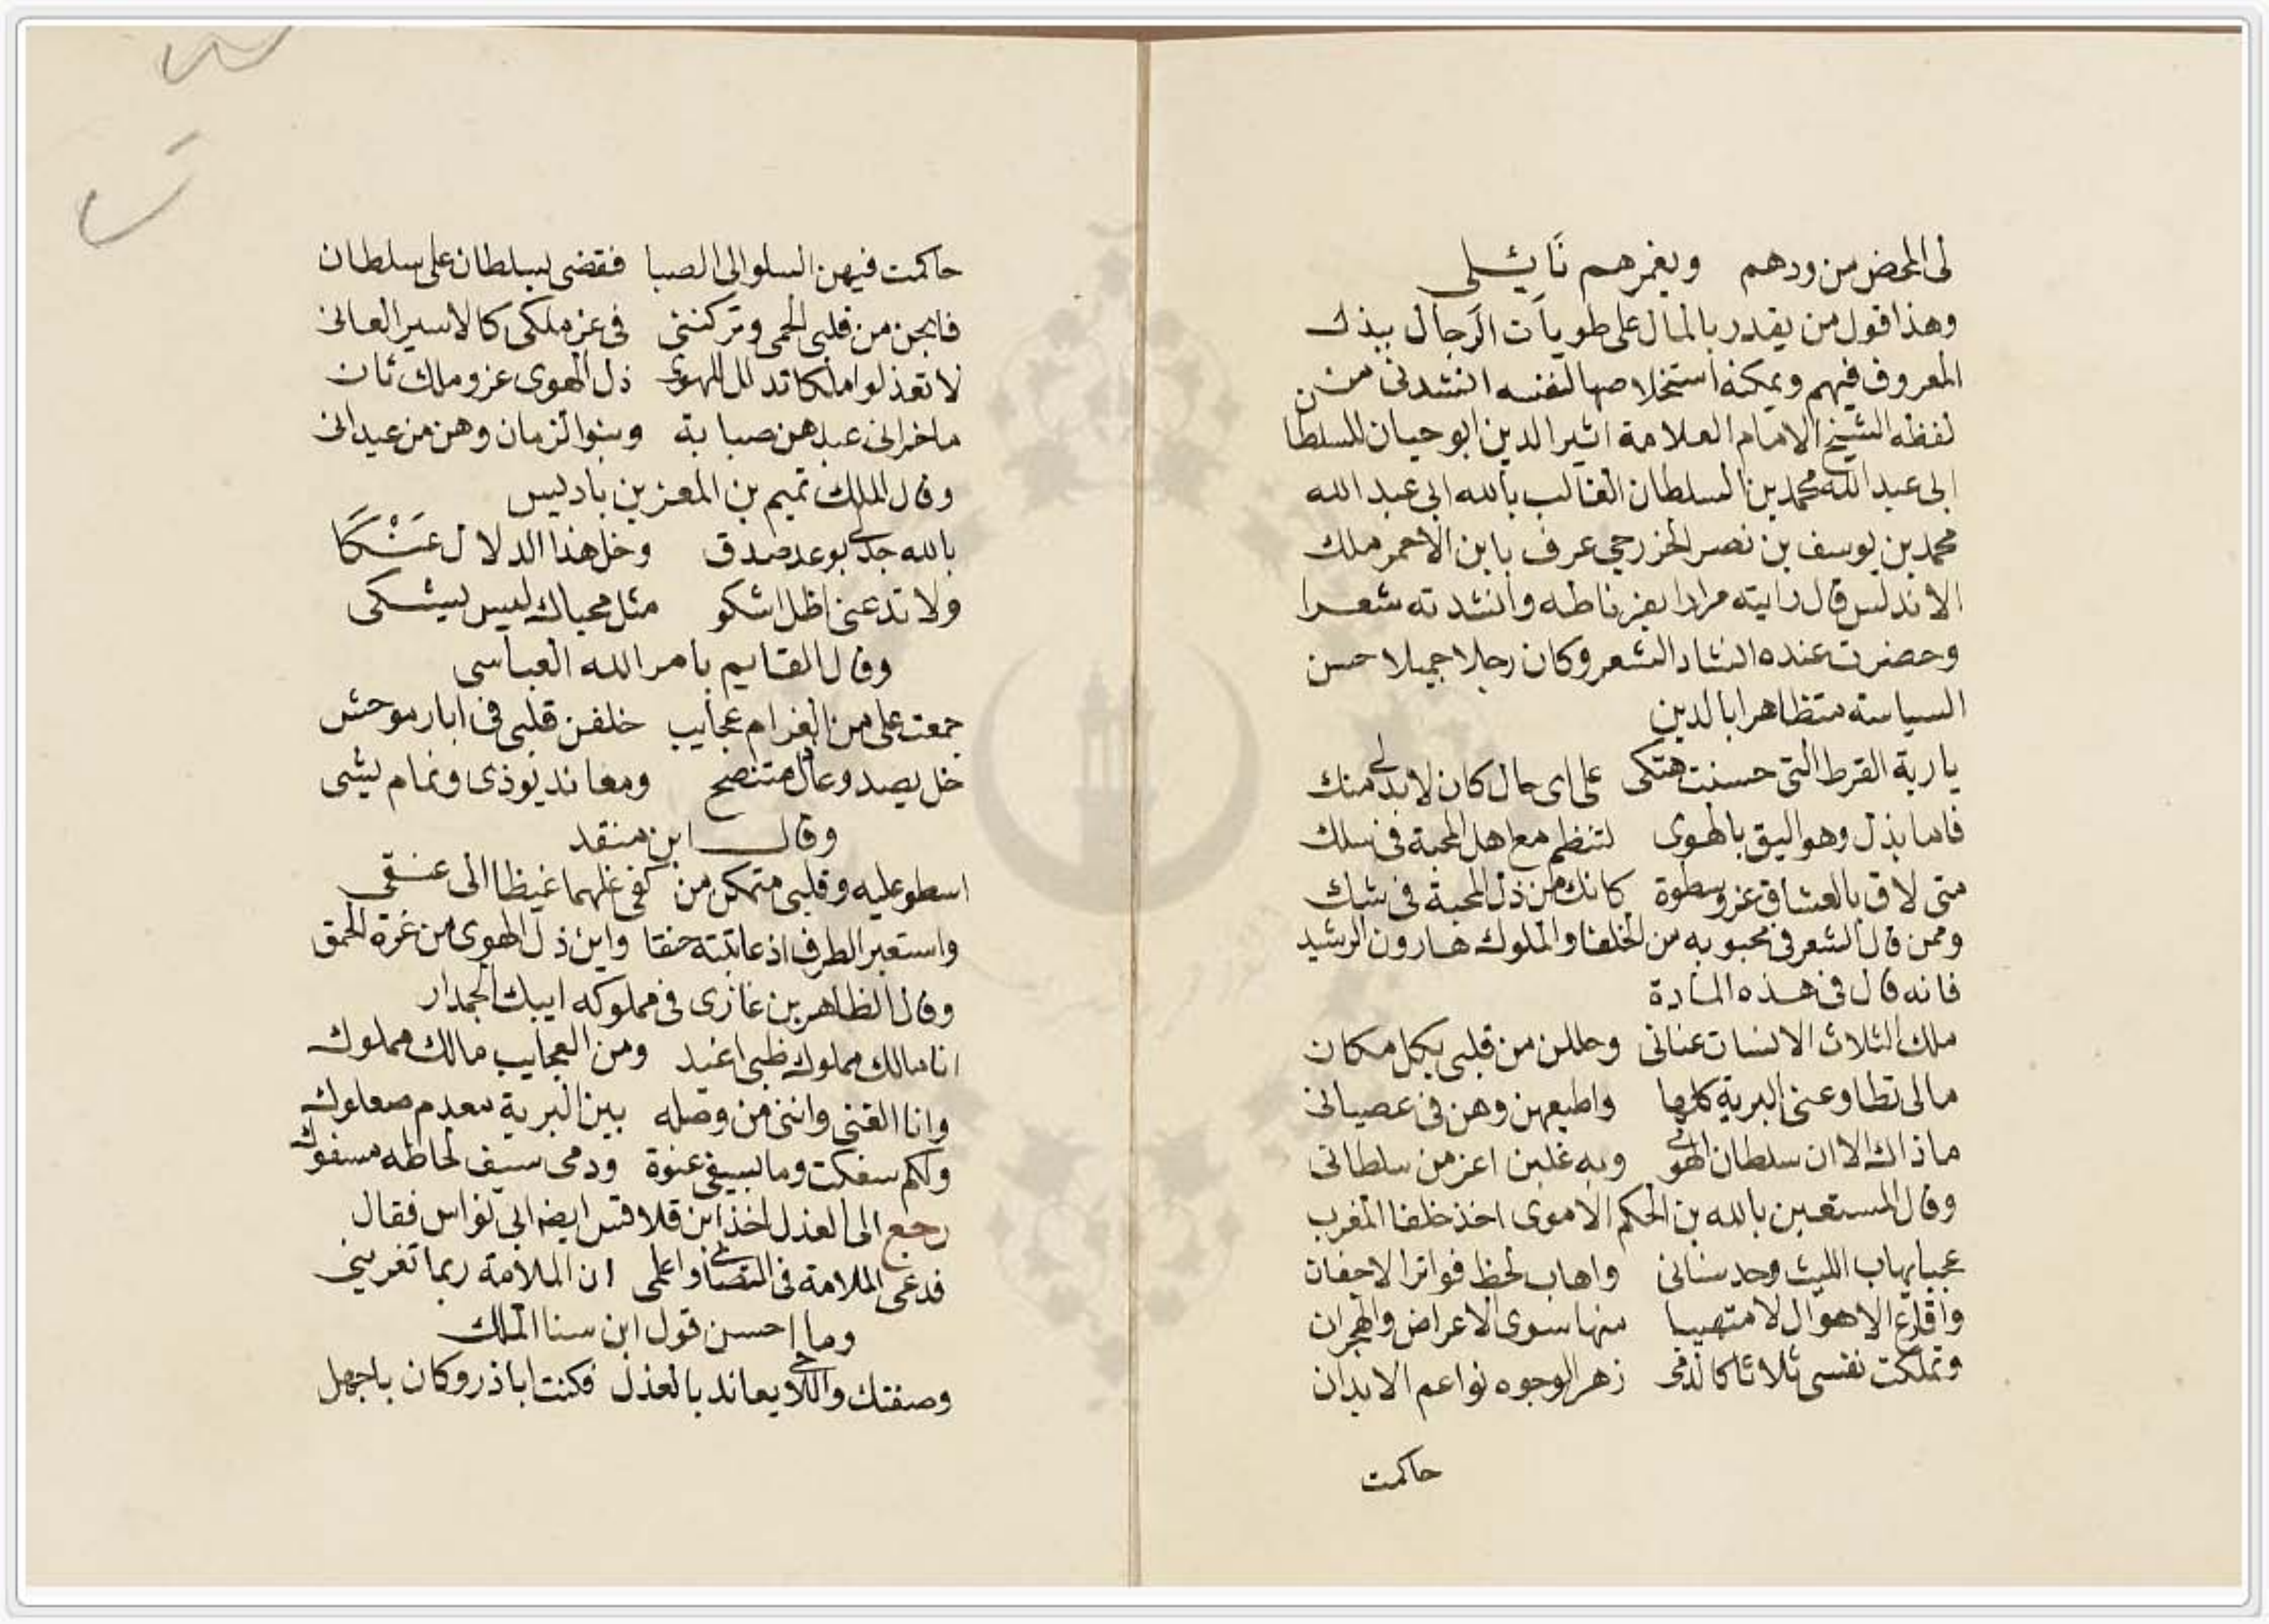 لى المحض من ودهم ويغمرهم نَايئلى
وهذا قول من يقدر بالمال على طويات الرجال ببذل
المعروف فيهم ويمكنه استخلاصها لنفسه انشدنى من
لفظه الشيخ الامام العلامة اثير الدين ابو حيان للسلطا
ابى عبد الله محمد بن السلطان الغالب بالله ابى عبد الله
محمد بن يوسف بن نصر الخزرجى عرف بابن الاحمر ملك
الاندلس قال رايته مرارا بغرناطه وانشدته شعرا
وحضرت عنده انشاد الشعر وكان رجلا جميلا حسن
السياسة متظاهرا بالدين
يا ربة القرط التى حسنت هتكى على اى حال كان لابد لى منك
فاما بذل وهو اليق بالهوى لتنظم مع اهل المحبة فى سلك
متى لاق بالعشاق عز وسطوة كانك من ذل المحبة فى شك
وممن قال الشعر فى محبوبه من الخلفا والملوك هارون الرشيد
فانه قال فى هذه المادة
ملك الثلاث الانسات عنانى وحللن من قلبى بكل مكان
مالى تطاوعنى البرية كلها واطيعهن وهن فى عصيانى
ما ذاك الا ان سلطان الهوى وبه غلبن اعز من سلطانى
وقال المستعين بالله بن الحكم الاموى احد خلفا المغرب
عجبا يهاب الليث وحد سنانى واهاب لحظ فواتر الاجفان
واقارع الاهوال لا متهيبا منها سوى الاعراض والهجران
وتملكت نفسى ثلاثا كالدمى زهر الوجوه نواعم الابدان
حاكمت
حاكمت فيهن السلو الى الصبا فقضى بسلطان على سلطان
فابحن من قلبى الحمى وتركننى فى عز ملكى كالاسير العانى
لا تعذلوا ملكا تدلل للهوى ذل الهوى عز وملك ثان
ما ضرانى عبدهن صبابة وبنو الزمان وهن من عبدانى
وقال الملك تميم بن المعز بن باديس
بالله جد لى بوعد صدق وخل هذا الدلال عَنْكَا
ولا تدعنى اظل اشكو مثل محياك ليس يشكى
وقال القايم بامر الله العباسى
جمعت على من الغرام عجايب خلفن قلبى فى ابار موحش
خل يصد وعاذل متنصح ومعاند يوذى ونمام يشى
وقال ابن منقد
اسطو عليه وقلبى متمكن من كفى غلهما غيظا الى عنقى
واستعير الطرف اذ عاتبته حنقا واين ذل الهوى من غرة الحمق
وقال الظاهر بن غازى فى مملوكه ايبك الجمدار
انا مالك مملوك ظبى اغيد ومن العجايب مالك مملوك
وانا الغنى واننى من وصله بين البرية معدم صعلوك
ولكم سفكت وما بسيفى عنوة ودمى سيف لحاظه مسفوك
رجع الى العذل اخذ ابن قلاقس ايضا ابى نواس فقال
فدعى الملامة فى التصابى واعلمى ان الملامة ربما تغرينى
وما احسن قول ابن سنا الملك
وصفتك واللاحى يعاند بالعذل فكنت اباذر وكان باجهل